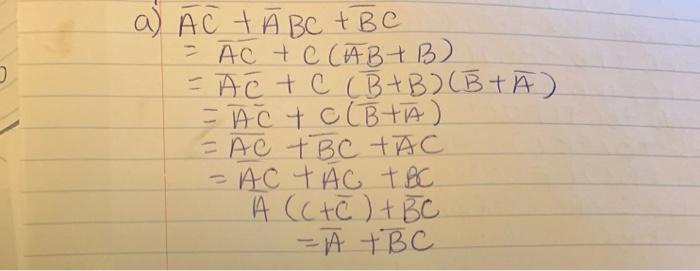 a) A̅C̅ + A̅BC + B̅C
= A̅C̅ + C (A̅B + B)
= A̅C̅ + C (B̅+B)(B̅+A̅)
= A̅C̅ + C(B̅+A̅)
= A̅C̅ + B̅C + A̅C
= A̅C̅ + A̅C + BC
A̅ (C+C̅) + B̅C
= A̅ + B̅C